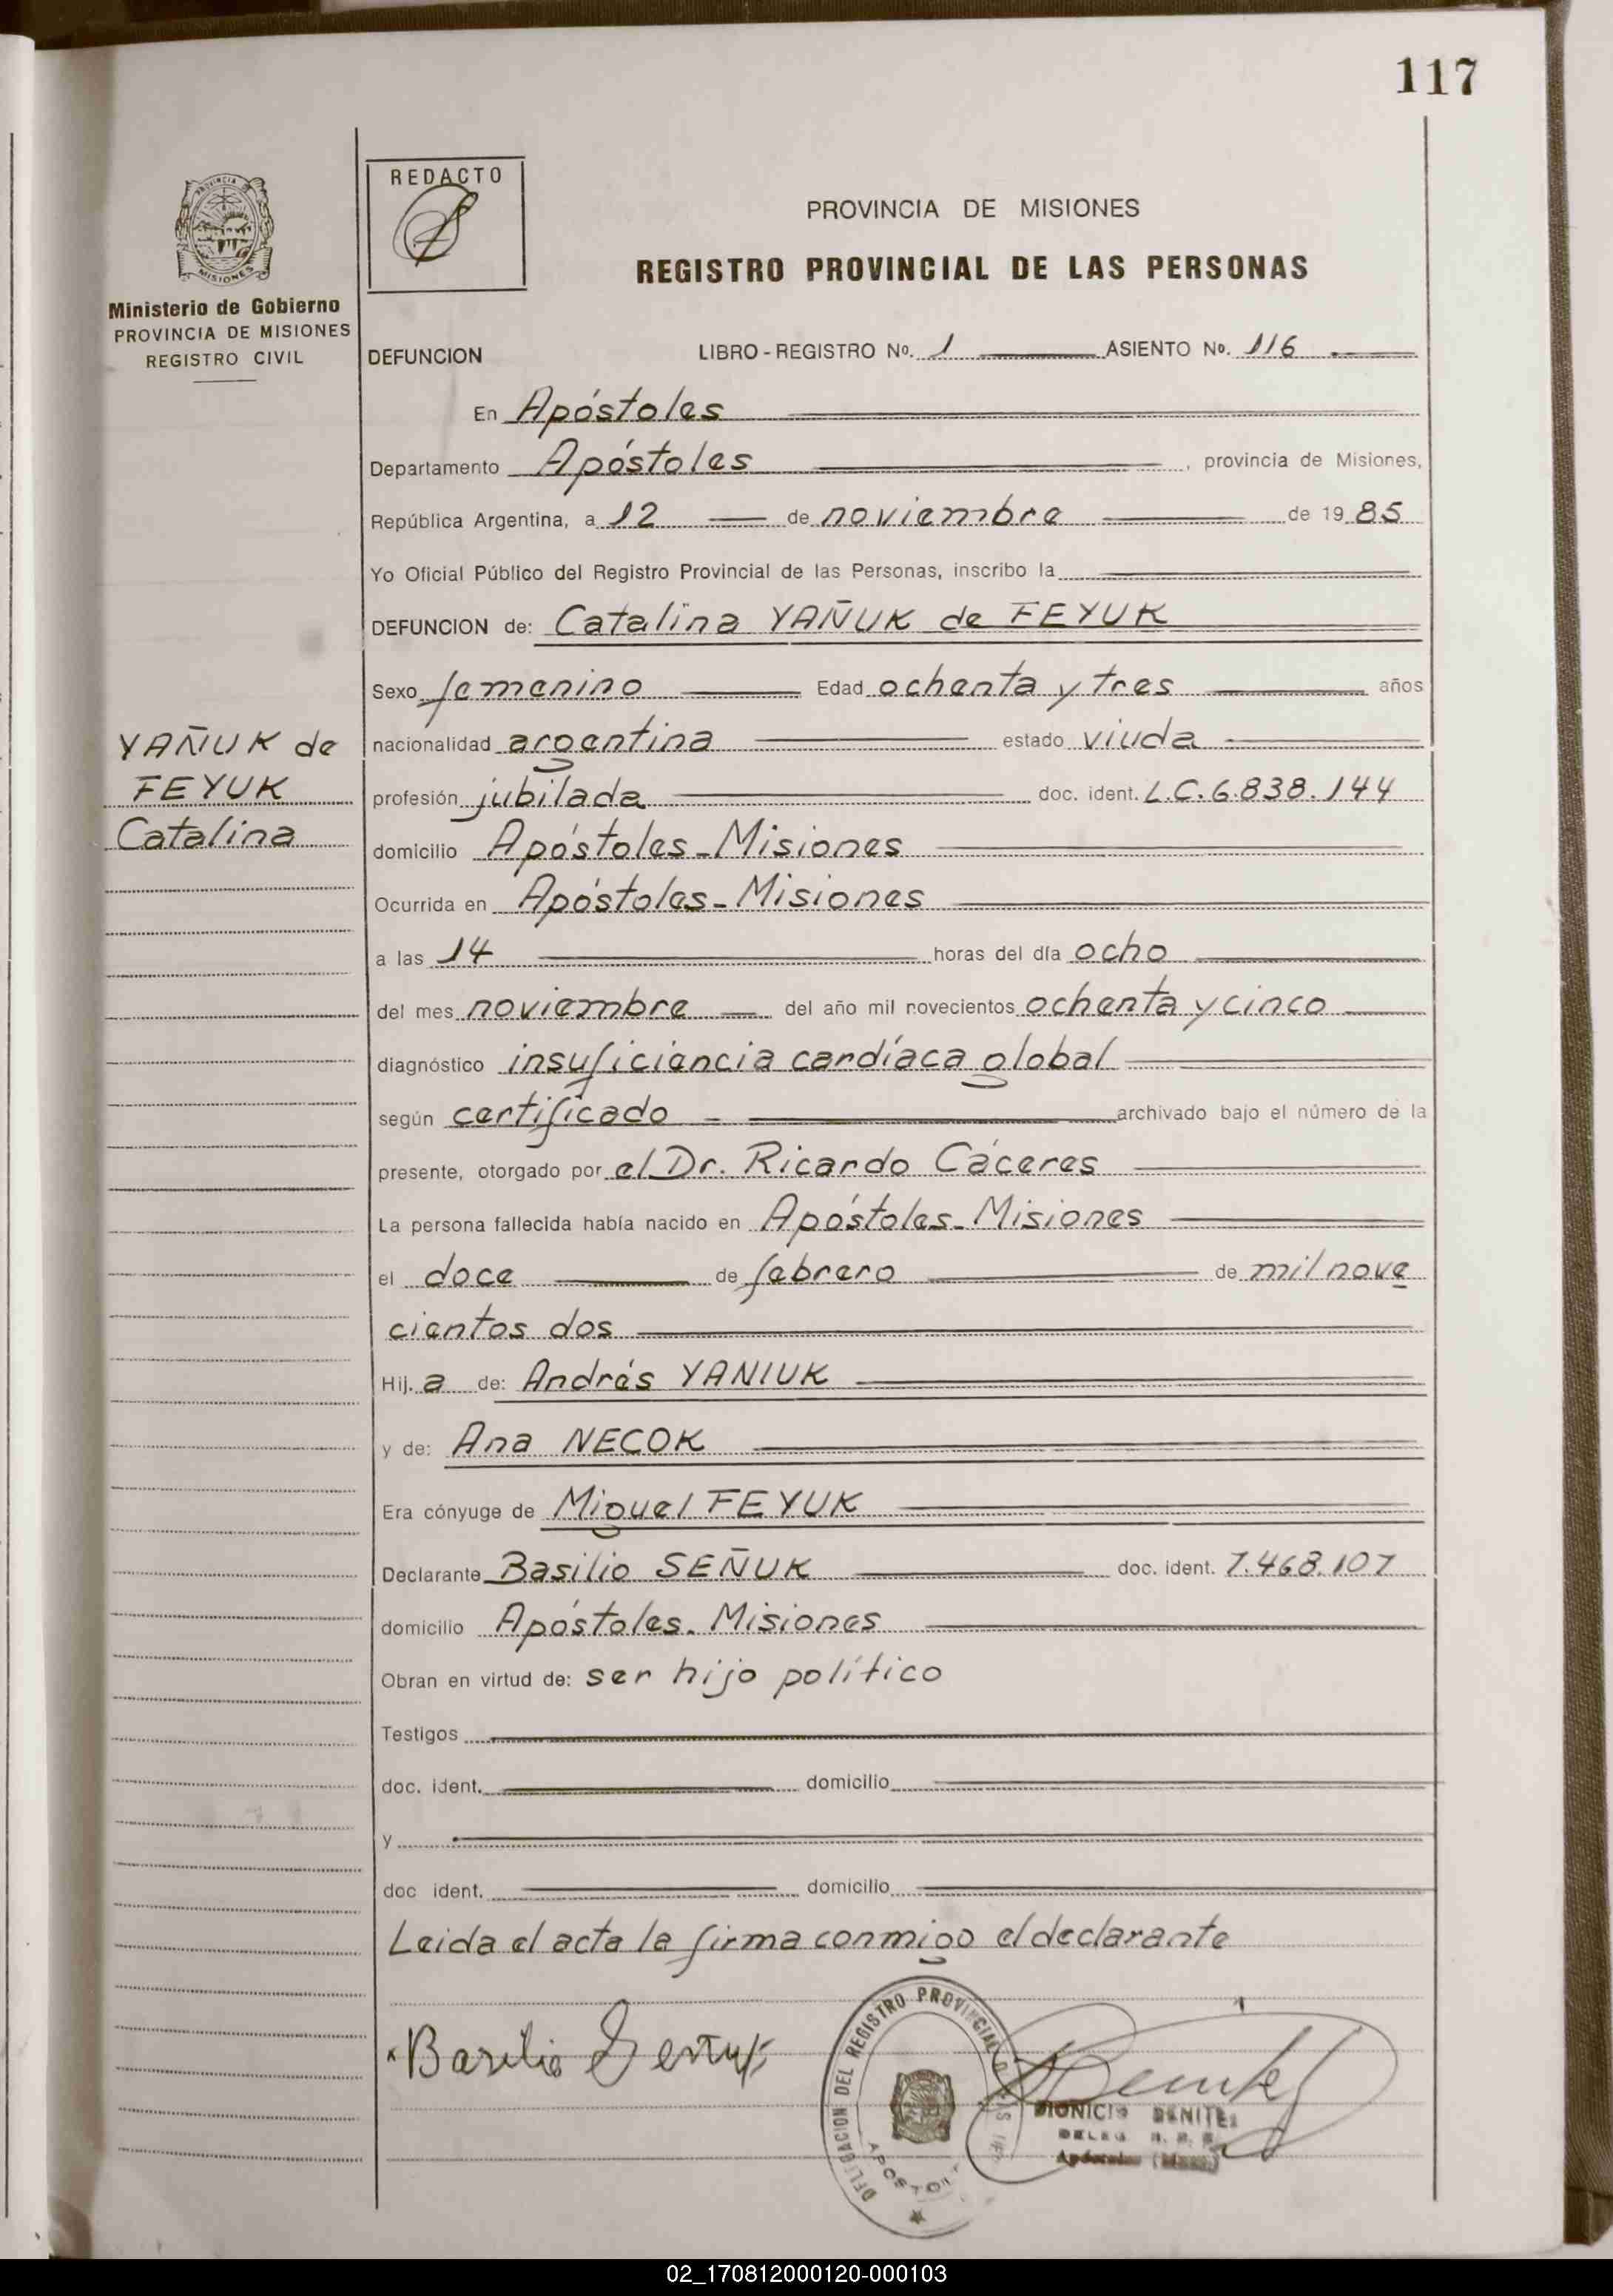 117
PROVINCIA
MISIONES
Ministerio de Gobierno
PROVINCIA DE MISIONES
REGISTRO CIVIL
REDACTO
PROVINCIA DE MISIONES
REGISTRO PROVINCIAL DE LAS PERSONAS
DEFUNCION LIBRO - REGISTRO No. 1 ASIENTO No. 116
En Apóstoles
Departamento Apóstoles, provincia de Misiones,
República Argentina, a 12 de noviembre de 1985
Yo Oficial Público del Registro Provincial de las Personas, inscribo la
DEFUNCION de: Catalina YAÑUK de FEYUK
Sexo femenino Edad ochenta y tres años
YAÑUK de
FEYUK
Catalina
nacionalidad argentina estado viuda
profesión jubilada doc. ident. L.C. 6.838.144
domicilio Apóstoles - Misiones
Ocurrida en Apóstoles - Misiones
a las 14 horas del día ocho
del mes noviembre del año mil novecientos ochenta y cinco
diagnóstico insuficiencia cardíaca global
según certificado archivado bajo el número de la
presente, otorgado por el Dr. Ricardo Cáceres
La persona fallecida había nacido en Apóstoles - Misiones
el doce de febrero de mil nove
cientos dos
Hij. a de: Andrés YANIUK
y de: Ana NECOK
Era cónyuge de Miguel FEYUK
Declarante Basilio SEÑUK doc. ident. 7.468.107
domicilio Apóstoles - Misiones
Obran en virtud de: ser hijo político
Testigos
doc. ident. domicilio
y
doc ident. domicilio
Leida el acta la firma conmigo el declarante
Basilio Señuk
DELEGACION DEL REGISTRO PROVINCIAL
DIONICIO BENITEZ
DELEG. R. P. P.
Apóstoles (Mnes.)
02_170812000120-000103